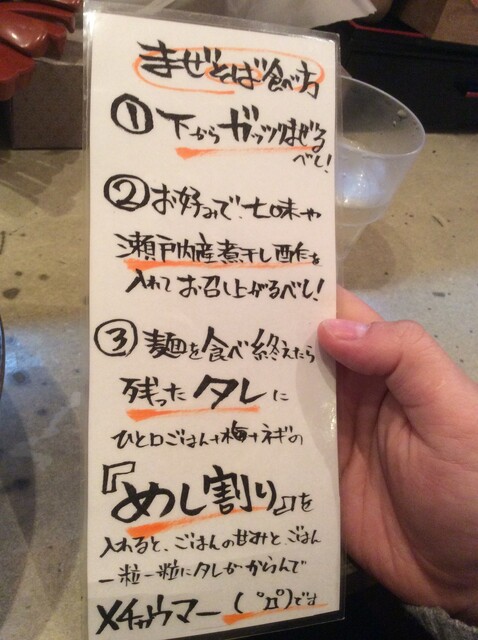 まぜそば食べ方
①下からガッツリまぜる
べし!
②お好みで、七味や
瀬戸内産煮干し酢を
入れてお召し上がるべし!
③麺を食べ終えたら
残ったタレに
ひと口ごはん+梅+ネギの
『めし割り』を
入れると、ごはんの甘みと、ごはん
一粒一粒にタレがからんで
メチャウマー(゚Д゚)です